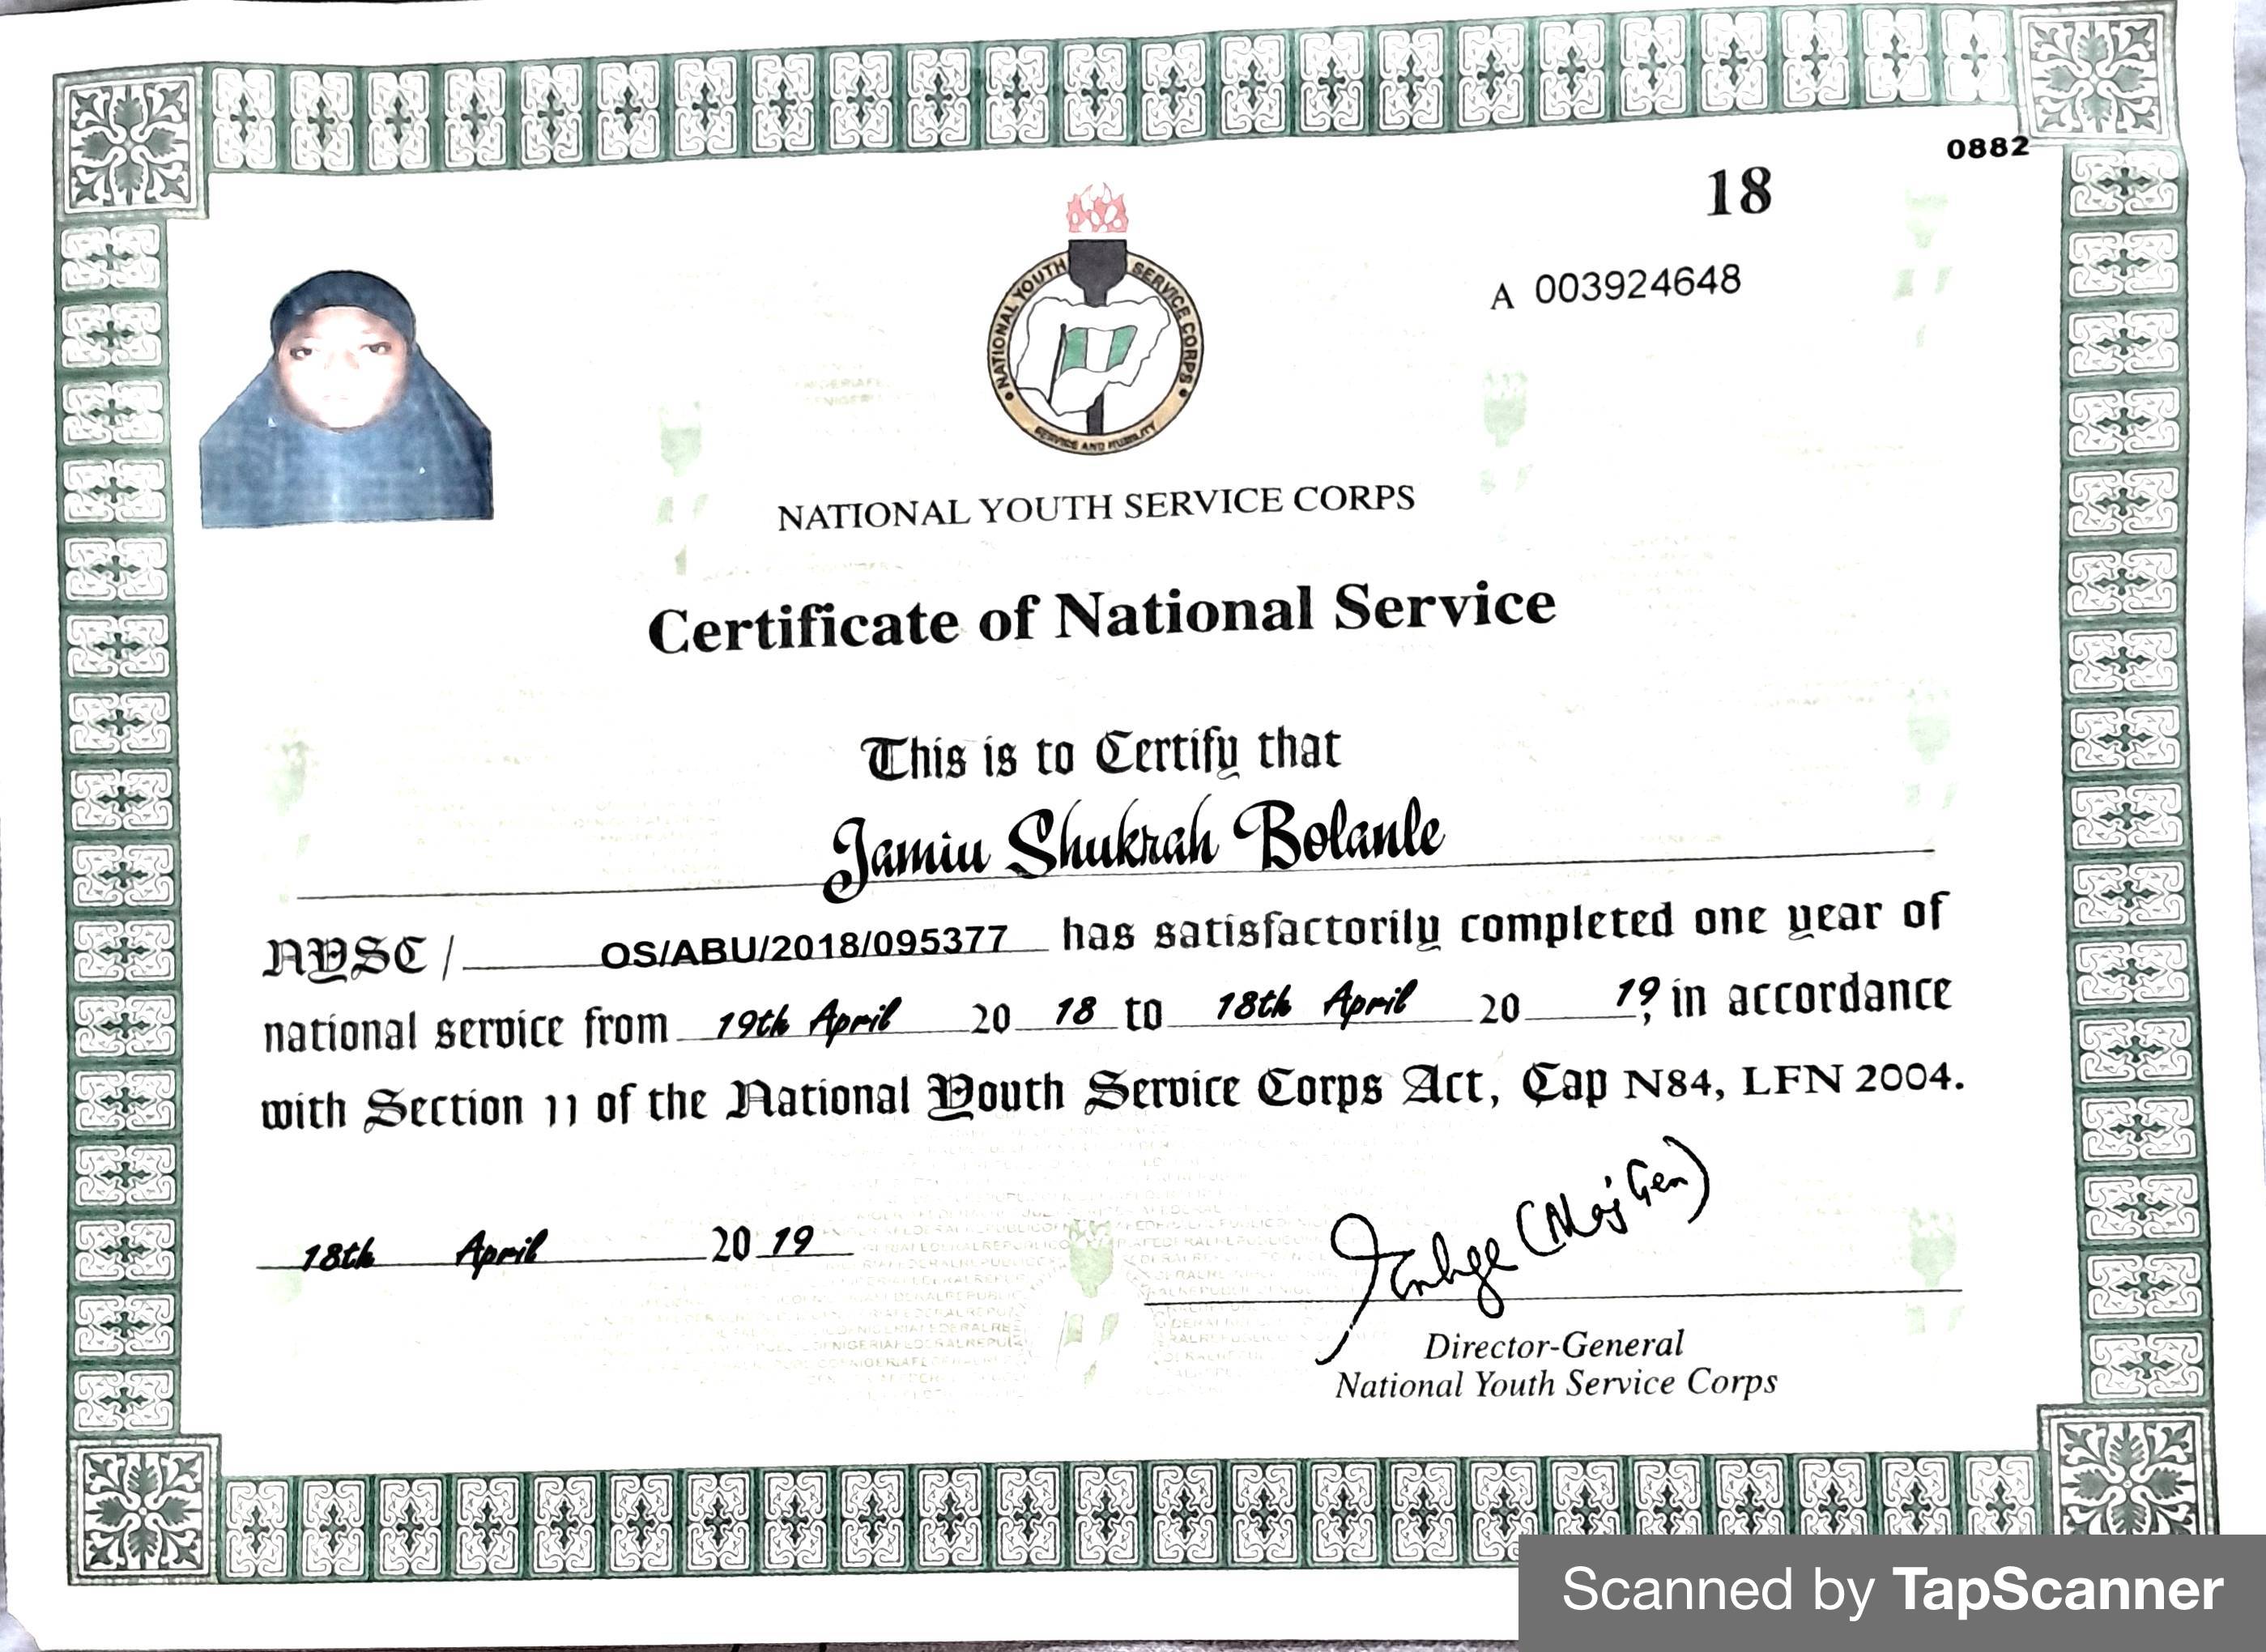 0882
18
A 003924648
NATIONAL YOUTH SERVICE CORPS
SERVICE AND HUMILITY
NATIONAL YOUTH SERVICE CORPS
Certificate of National Service
This is to Certify that
Jamiu Shukrah Bolanle
NYSC / OS/ABU/2018/095377 has satisfactorily completed one year of
national service from 19th April 20 18 to 18th April 20 19, in accordance
with Section 11 of the National Youth Service Corps Act, Cap N84, LFN 2004.
18th April 20 19
(Maj Gen)
Director-General
National Youth Service Corps
Scanned by TapScanner